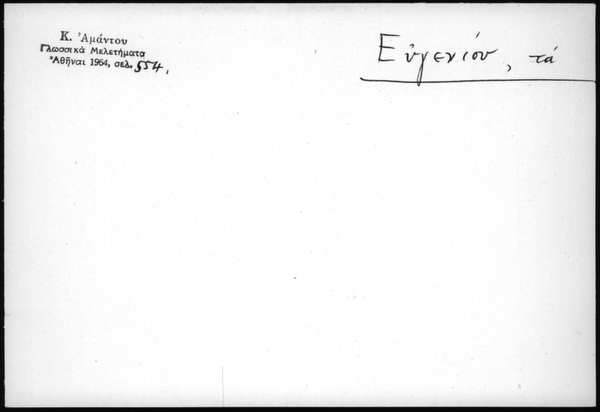 Κ. Ἀμάντου
Γλωσσικά Μελετήματα
Ἀθῆναι 1964, σελ. 554.
Εὐγενίου, τά